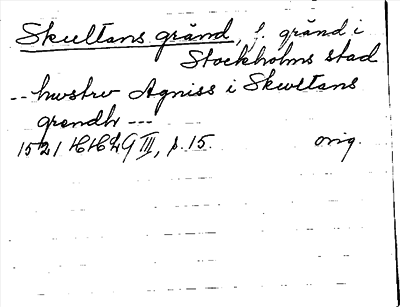 Skultans gränd, f. gränd i
Stockholms stad
-- hwstrv Agniss i Skwltans
grendh ---
1521 HH, p. 15. orig.